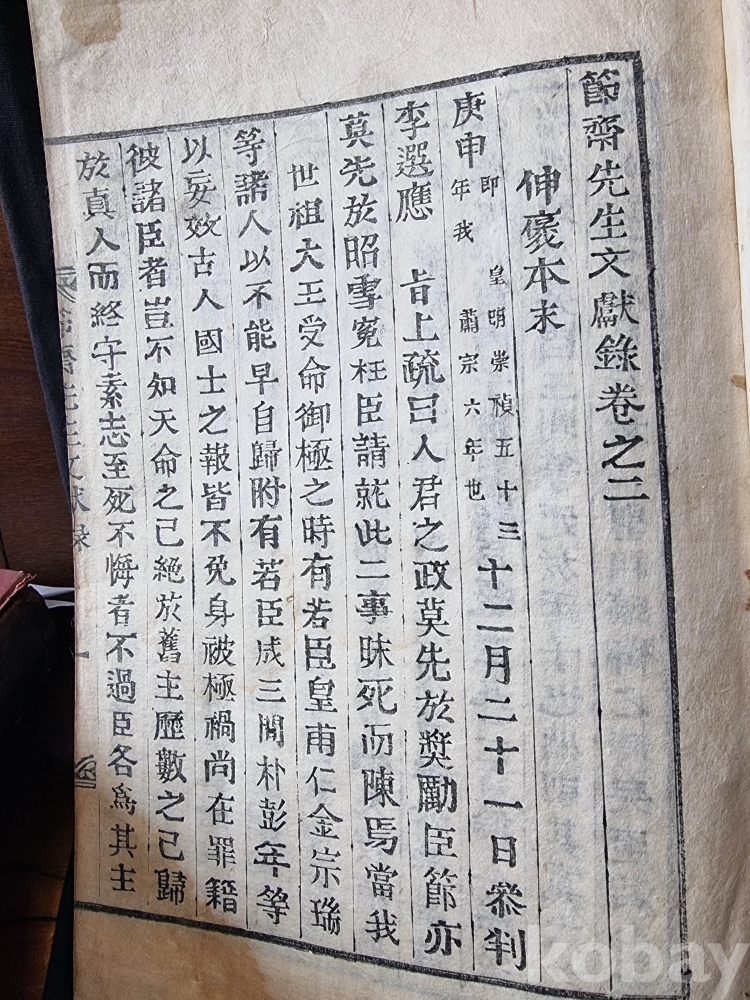 節齋先生文獻錄卷之二
伸褒本末
庚申即皇明崇禎五十三年我肅宗六年也十二月二十一日叅判
李選應旨上疏曰人君之政莫先於奬勵臣節亦
莫先於昭雪寃枉臣請就此二事昧死而陳焉當我
世祖大王受命御極之時有若臣皇甫仁金宗瑞
等諸人以不能早自歸附有若臣成三問朴彭年等
以妄效古人國士之報皆不免身被極禍尚在罪籍
彼諸臣者豈不知天命之已絶於舊主歷數之已歸
於真人而終守素志至死不悔者不過臣各為其主
齋先生文獻錄
一
kobay